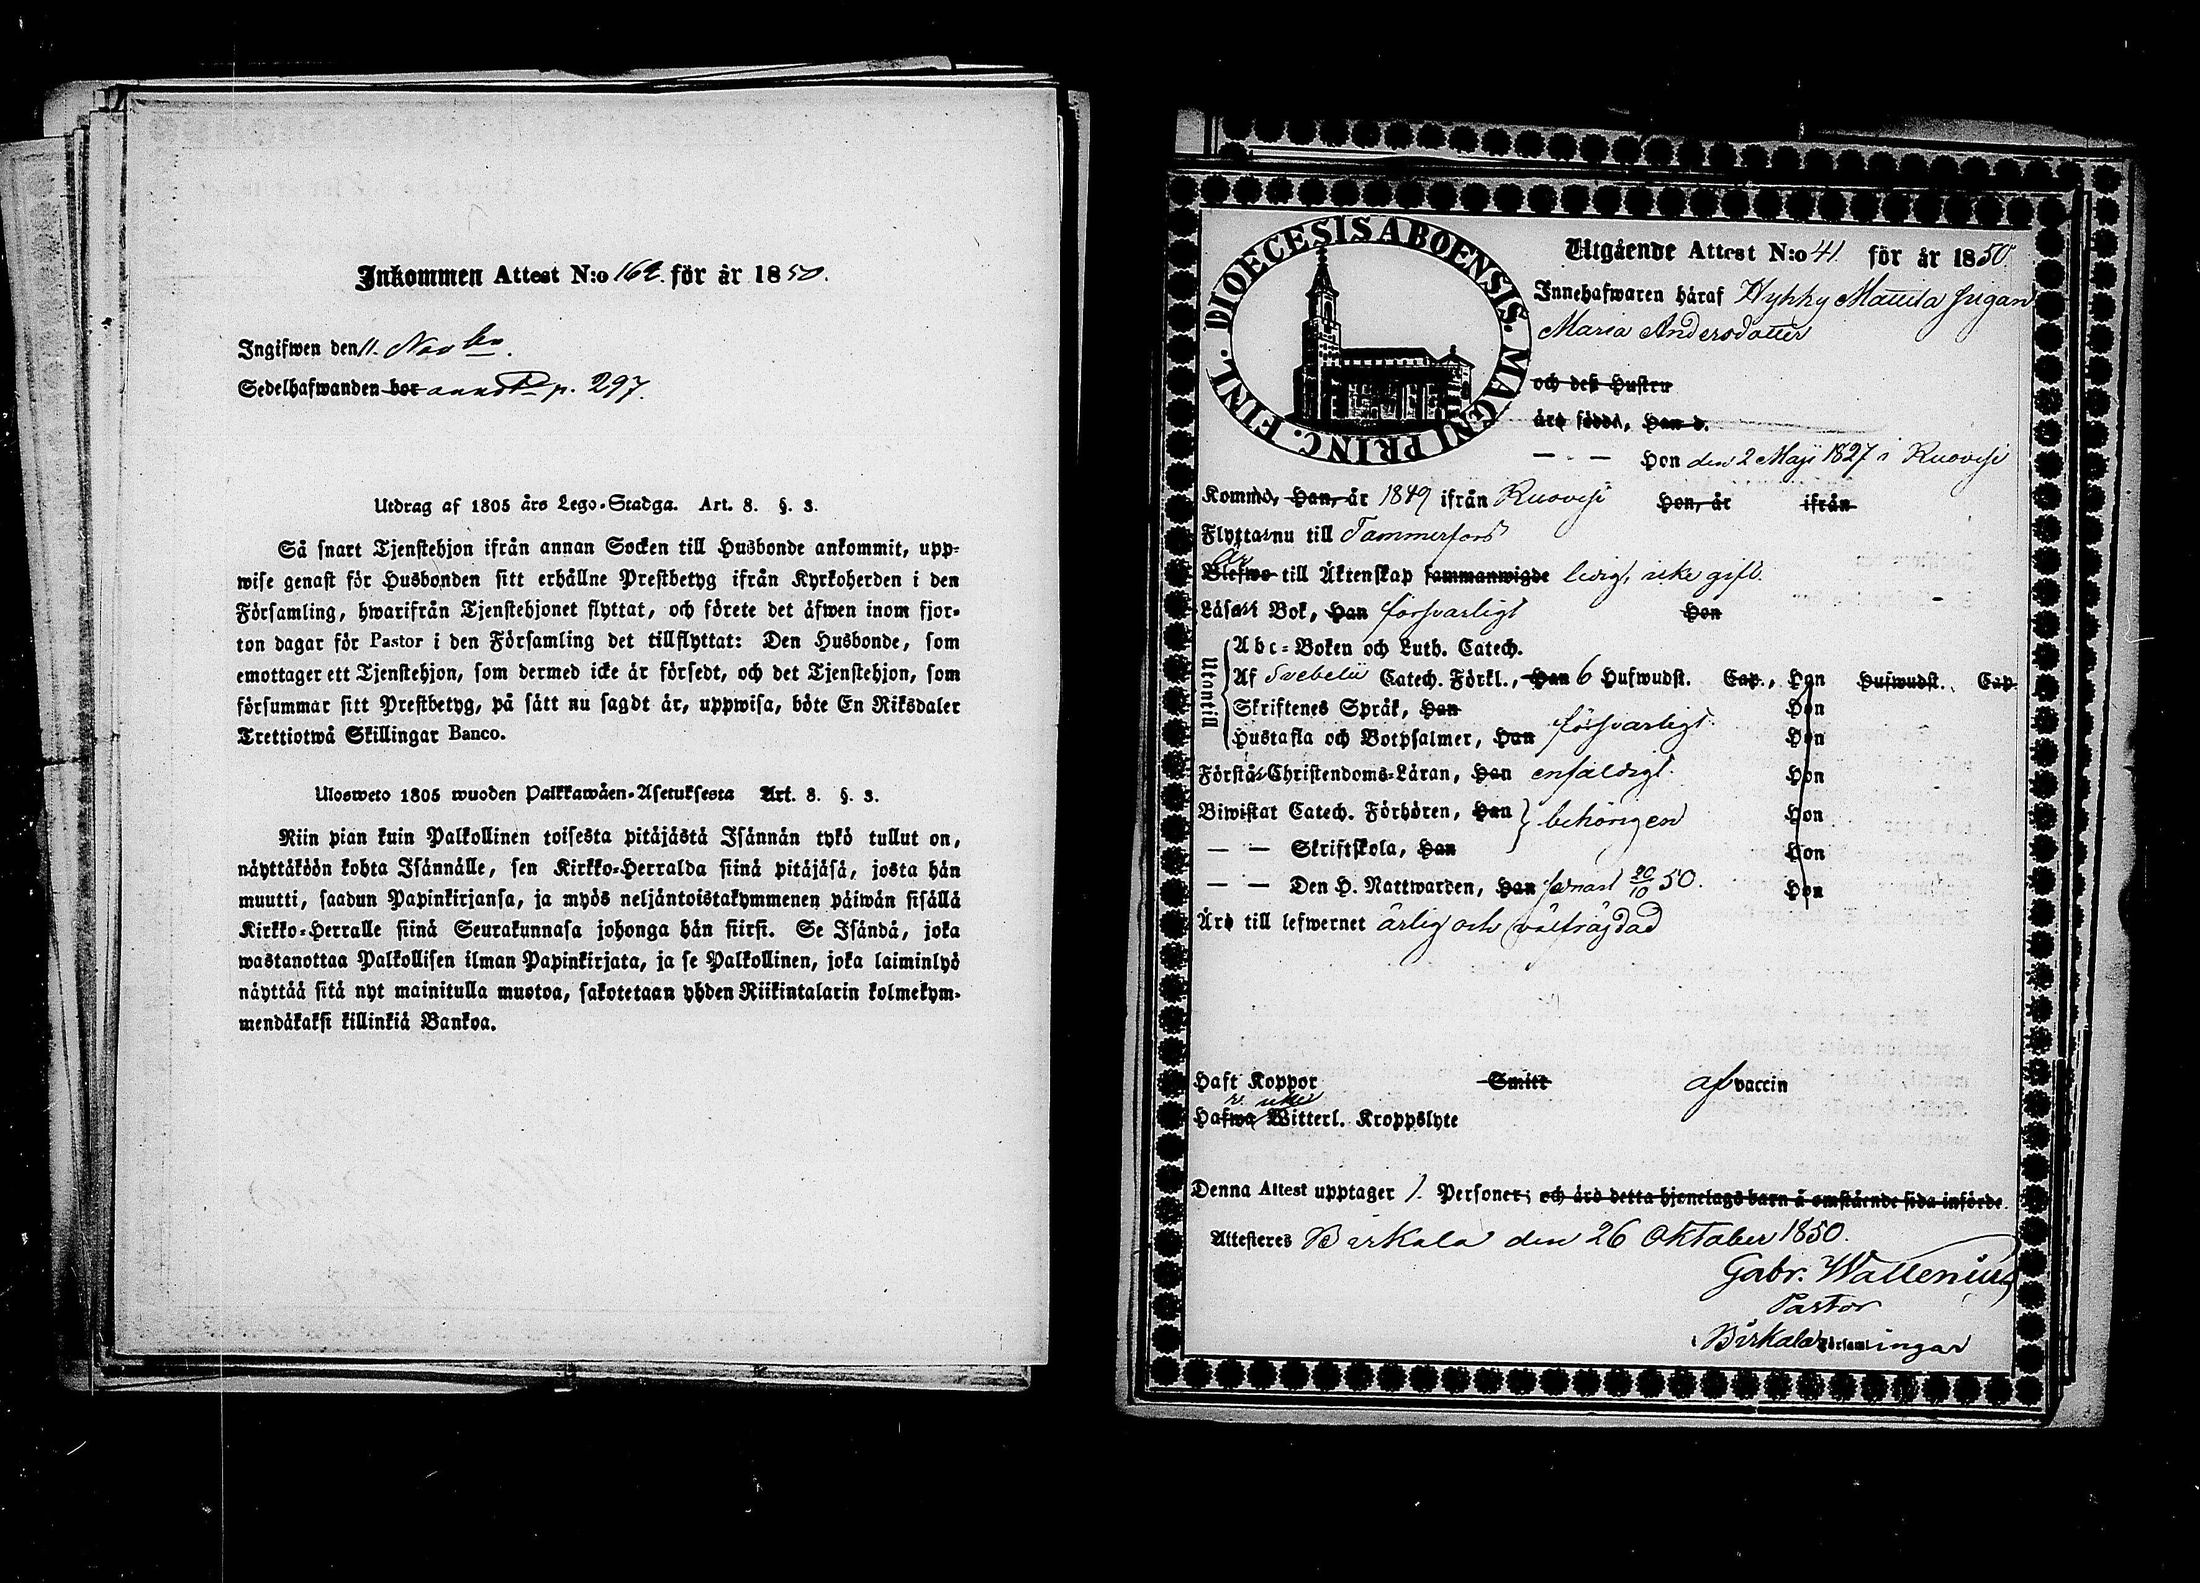 Inkommen Attest N:o 162. för år 1850.
Ingifwen den 11. Novbr.
Sedelhafwanden bor annot. p. 297.
Utdrag af 1805 års Lego-Stadga. Art. 8. §. 3.
Så snart Tjenstehjon ifrån annan Socken till Husbonde ankommit, upp-
wise genast för Husbonden sitt erhållne Prestbetyg ifrån Kyrkoherden i den
Församling, hwarifrån Tjenstehjonet flyttat, och förete det äfwen inom fjor-
ton dagar för Pastor i den Församling det tillflyttat: Den Husbonde, som
emottager ett Tjenstehjon, som dermed icke är försedt, och det Tjenstehjon, som
försummar sitt Prestbetyg, på sätt nu sagdt är, uppwisa, böte En Riksdaler
Trettiotwå Skillingar Banco.
Ulosweto 1805 wuoden Palkkawäen-Asetuksesta Art. 8. §. 3.
Niin pian kuin Palkollinen toisesta pitäjästä Isännän tykö tullut on,
näyttäköön kohta Isännälle, sen Kirkko-Herralda siinä pitäjäsä, josta hän
muutti, saadun Papinkirjansa, ja myös neljäntoistakymmenen päiwän sisällä
Kirkko-Herralle siinä Seurakunnasa johonga hän siirsi. Se Isändä, joka
wastanottaa Palkollisen ilman Papinkirjata, ja se Palkollinen, joka laiminlyö
näyttää sitä nyt mainitulla muotoa, sakotetaan yhden Riikintalarin kolmekym-
mendäkaksi killinkiä Bankoa.
DIOECESIS ABOENSIS. MAGNI PRINC. FINL.
Utgående Attest N:o 41 för år 1850.
Innehafwaren häraf Hyhky Mattila Pigan
Maria Andersdotter
och dess Hustru
äro födde, Han d.
— - — Hon den 2 Maji 1827 i Ruovesi
Kommo, Han, år 1849 ifrån Ruovesi Hon, år ifrån
Flyttar nu till Tammerfors
Är
Blefwo till Äktenskap sammanwigde ledig, icke gift.
Läsa i Bok, Han försvarligt Hon
Utantill
Abc-Boken och Luth. Catech.
Af Svebelii Catech. Förkl., Han 6 Hufwudst. Cap., Hon Hufwudst. Cap.
Skriftenes Språk, Han Hon
Hustafla och Botpsalmer, Han försvarligt. Hon
Förstår Christendoms-Läran, Han enfaldigt. Hon
Biwistat Catech. Förhören, Han behörigen Hon
— — Skriftskola, Han Hon
— — Den H. Nattwarden, Han senast 20/10 50. Hon
Äro till lefwernet ärlig och välfräjdad
Haft Koppor Smitt af vaccin
r. icke
Hafwa Witterl. Kroppslyte
Denna Attest upptager 1. Personer; och äro detta hjonelags barn å omstående sida införde.
Attesteres Birkala den 26 Oktober 1850.
Gabr. Wallenius
Pastor
i Birkala Församlingar